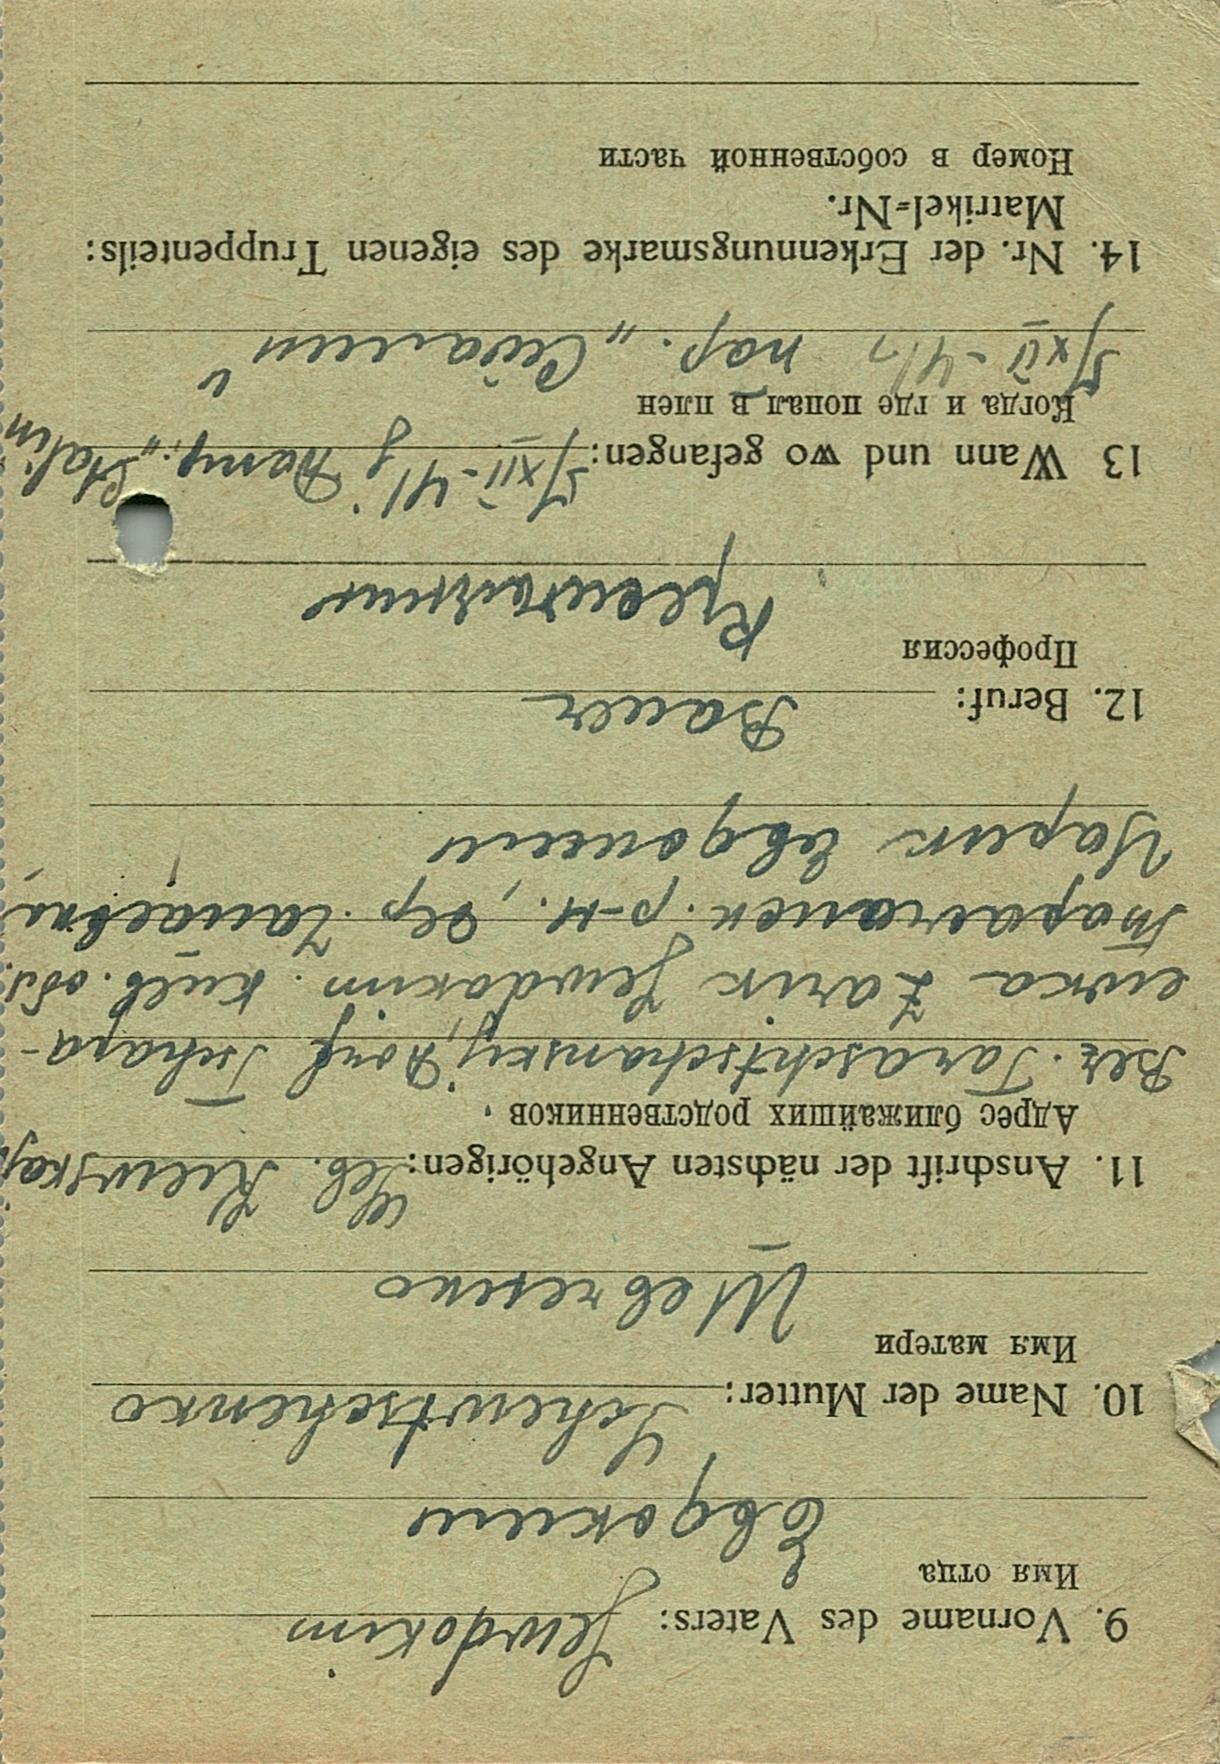 9. Vorname des Vaters: Jewdokim
Имя отца
Евдоким
10. Name der Mutter: Schewtschenko
Имя матери
Шевченко
11. Anschrift der nächsten Angehörigen: Geb. Kiewskaj
Адрес ближайших родственников
Bez. Taraschtschansky, Dorf Tschapa-
ewka Zarik Jewdokim. Киев. обл.
Таращанск. р-н., дер. Чапаевка,
Царик Евдоким
12. Beruf: Bauer
Профессия
Крестьянин
13 Wann und wo gefangen: 5/XII-41 j Damp. „Stalin"
Когда и где попал в плен
5/XII-41 г. пар. „Сталин"
14. Nr. der Erkennungsmarke des eigenen Truppenteils:
Matrikel-Nr.
Номер в собственной части